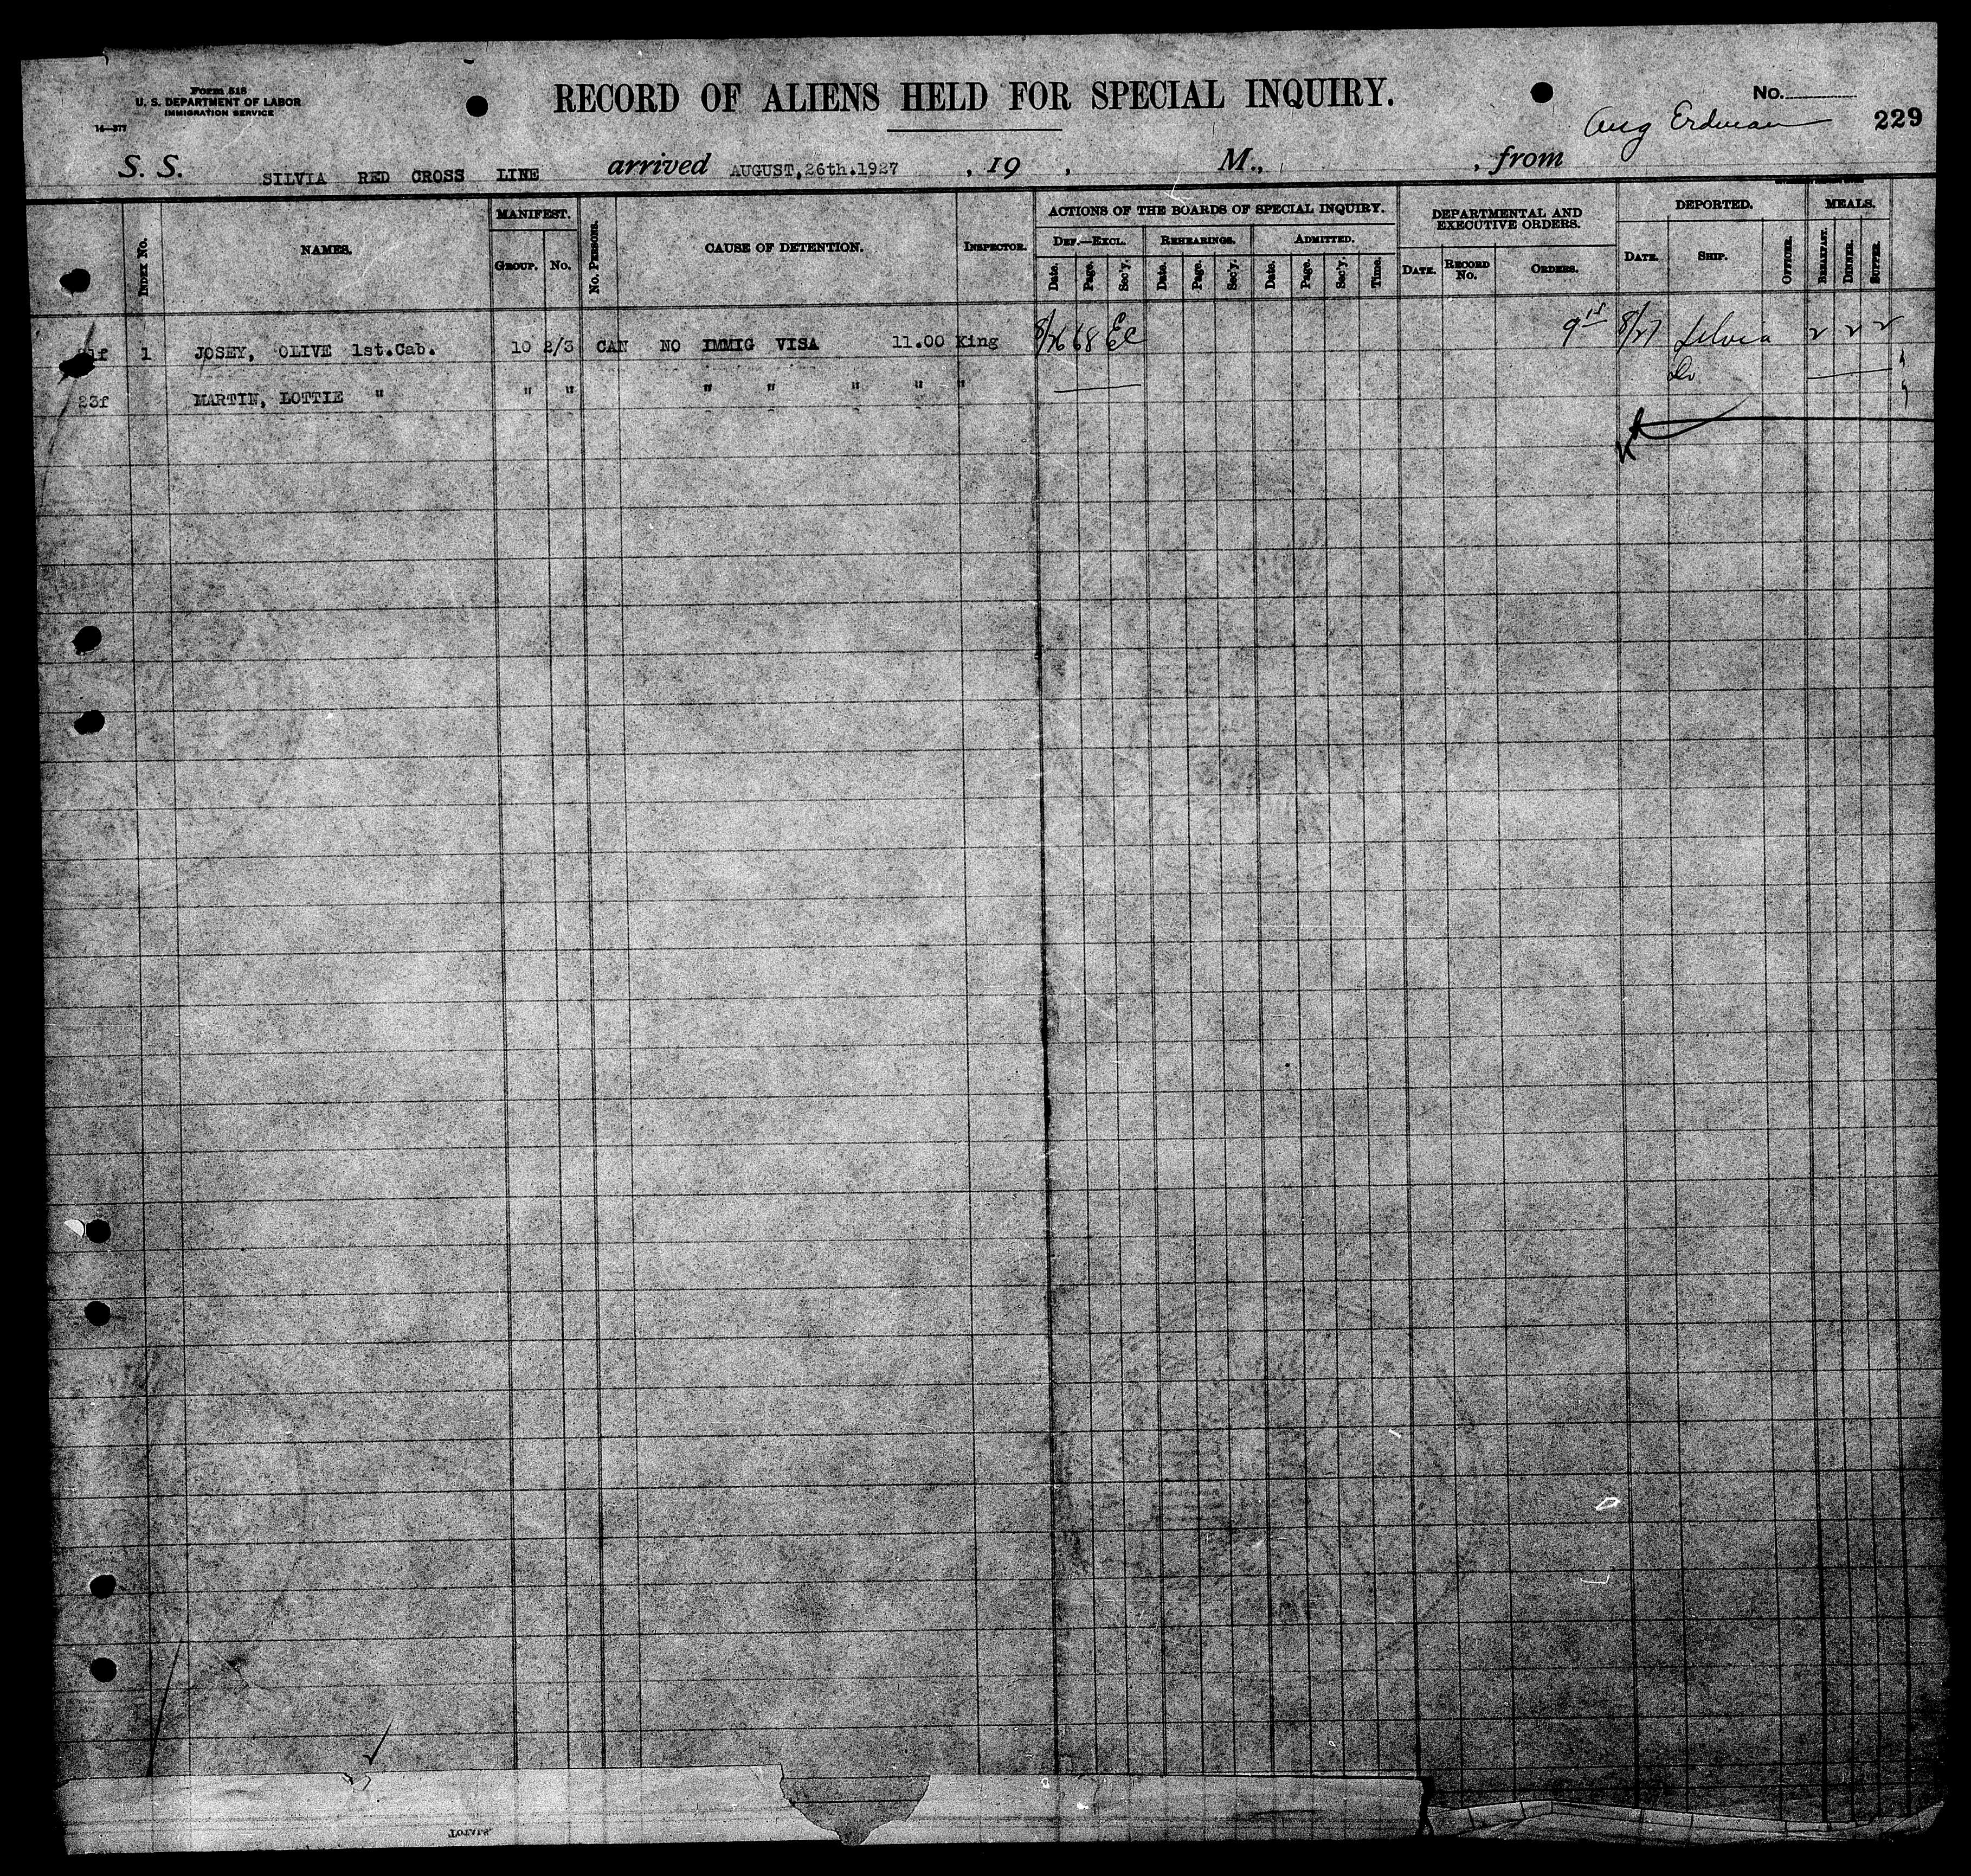 Form 518
U. S. DEPARTMENT OF LABOR
IMMIGRATION SERVICE
14—377
RECORD OF ALIENS HELD FOR SPECIAL INQUIRY.
No.
Aug Erdman 229
S. S. SILVIA RED CROSS LINE arrived AUGUST,26th.1927 , 19 , M., , from
INDEX NO.
NAMES.
MANIFEST.
GROUP. NO.
NO. PERSONS.
CAUSE OF DETENTION.
INSPECTOR.
ACTIONS OF THE BOARDS OF SPECIAL INQUIRY.
DEF.—EXCL. REHEARINGS. ADMITTED.
Date. Page. Sec'y. Date. Page. Sec'y. Date. Page. Sec'y. Time.
DEPARTMENTAL AND
EXECUTIVE ORDERS.
DATE. RECORD NO. ORDERS.
DEPORTED.
DATE. SHIP. OFFICER.
MEALS.
BREAKFAST. DINNER. SUPPER.
1 JOSEY, OLIVE 1st.Cab. 10 2/3 CAN NO IMMIG VISA 11.00 King 8/26 68 EC 8/27 Silvia 2 2 2
23f MARTIN, LOTTIE " " " " " " " " Do
TOTALS